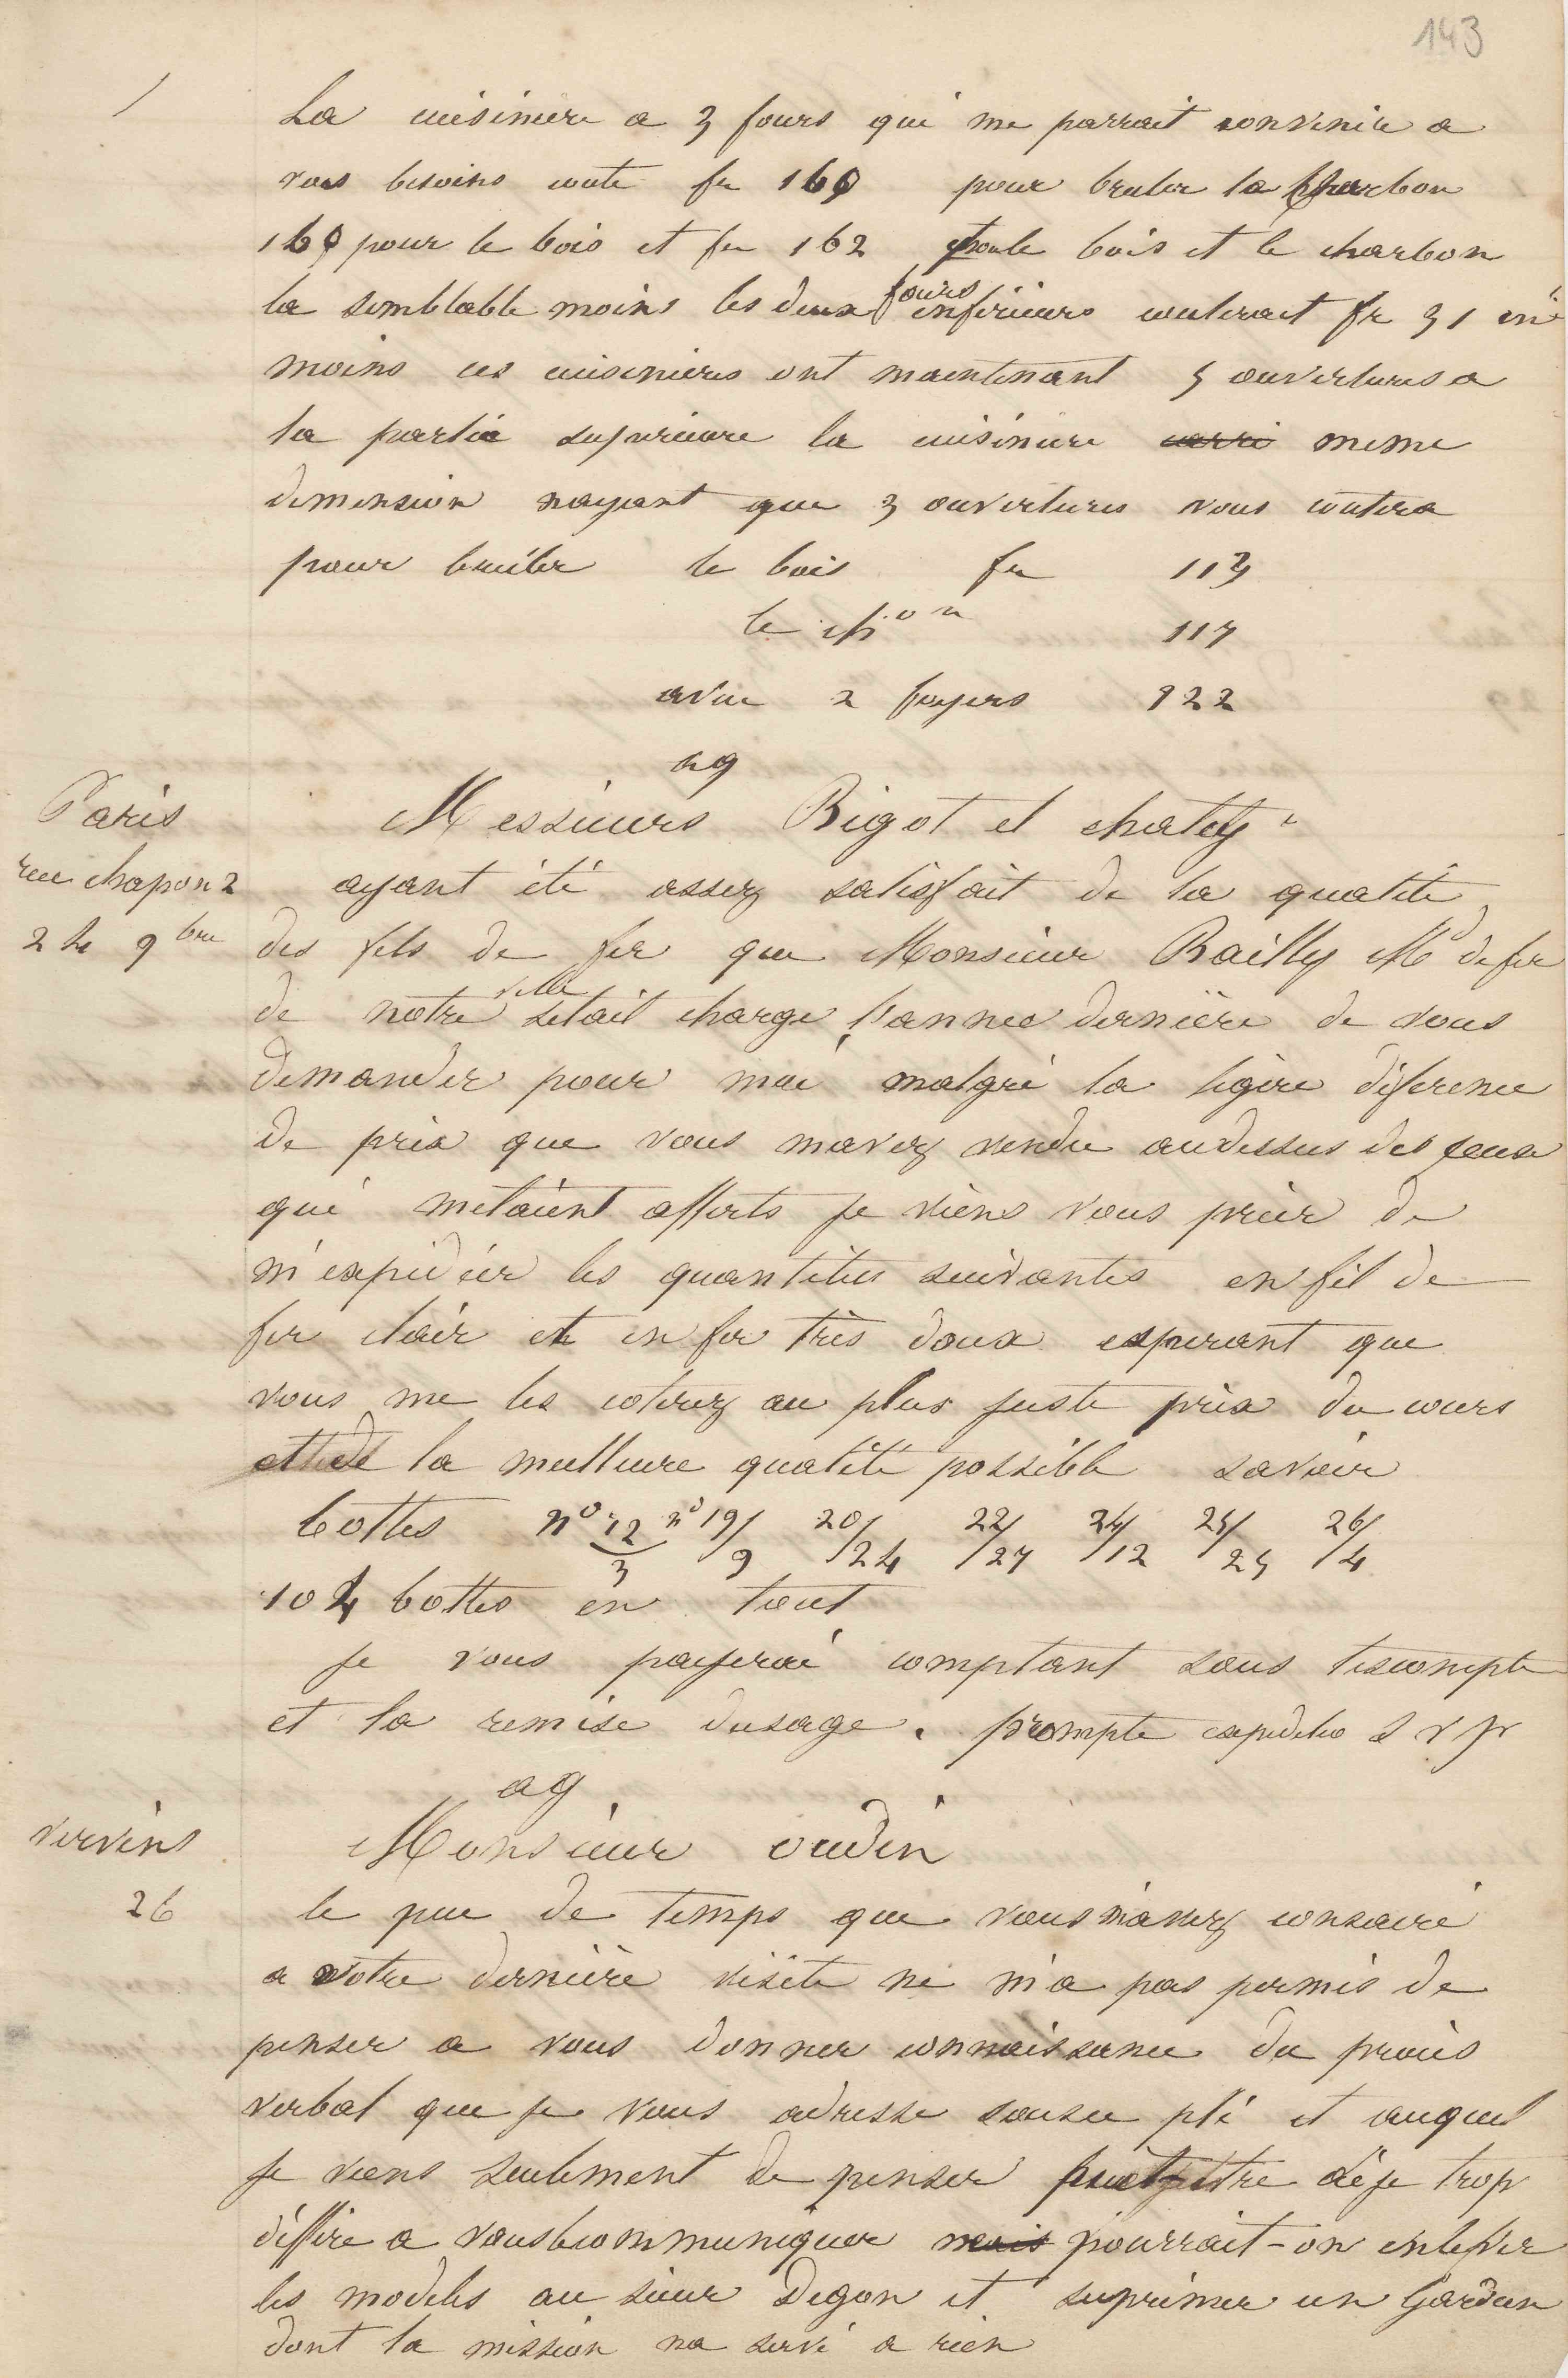 143
La cuisiniere a 3 fours qui me parrait convenir a
vos besoins coute fr 160 pour bruler le charbon
160 pour le bois et fr 162 pour le bois et le charbon
la semblable moins les deux fours inferieurs couterait fr 31 en
moins ces cuisinieres ont maintenant 5 ouvertures a
la partie superieure la cuisiniere carré meme
dimension nayant que 3 ouvertures vous coutera
pour bruler le bois fr 113
le ch.on 117
avec 2 foyers 122
ag
Paris
rue chapon 2
24 9bre
Messieurs Bigot et chatey
ayant été assez satisfait de la qualité
des fils de fer que Monsieur Bailly Md de fer
de notre ville setait charge l'annee dernière de vous
demander pour moi malgré la légère diference
de prix que vous mavez vendu audessus des ceux
qui metaient offerts je viens vous prier de
m'expédier les quantités suivantes en fil de
fer clair et en fer très doux esperant que
vous me les coterez au plus juste prix du cours
et de la meilleure qualité possible savoir
bottes n° 12/3 n° 19/9 20/24 22/27 24/12 25/25 26/4
104 bottes en tout
je vous payerai comptant sous lescompte
et la remise dusage. prompte expeditio s v p
ag
vervins
26
Monsieur oudin
le peu de temps que vous m'avez consacré
a votre dernière visite ne m'a pas permis de
penser a vous donner connaissance du procès
verbal que je vous adresse sous ce pli et auquel
je viens seulement de penser peut etre déja trop
différé a vous communiquer mais pourrait-on enlever
les modeles au sieur Degon et suprimer un Gardien
dont la mission na servi a rien